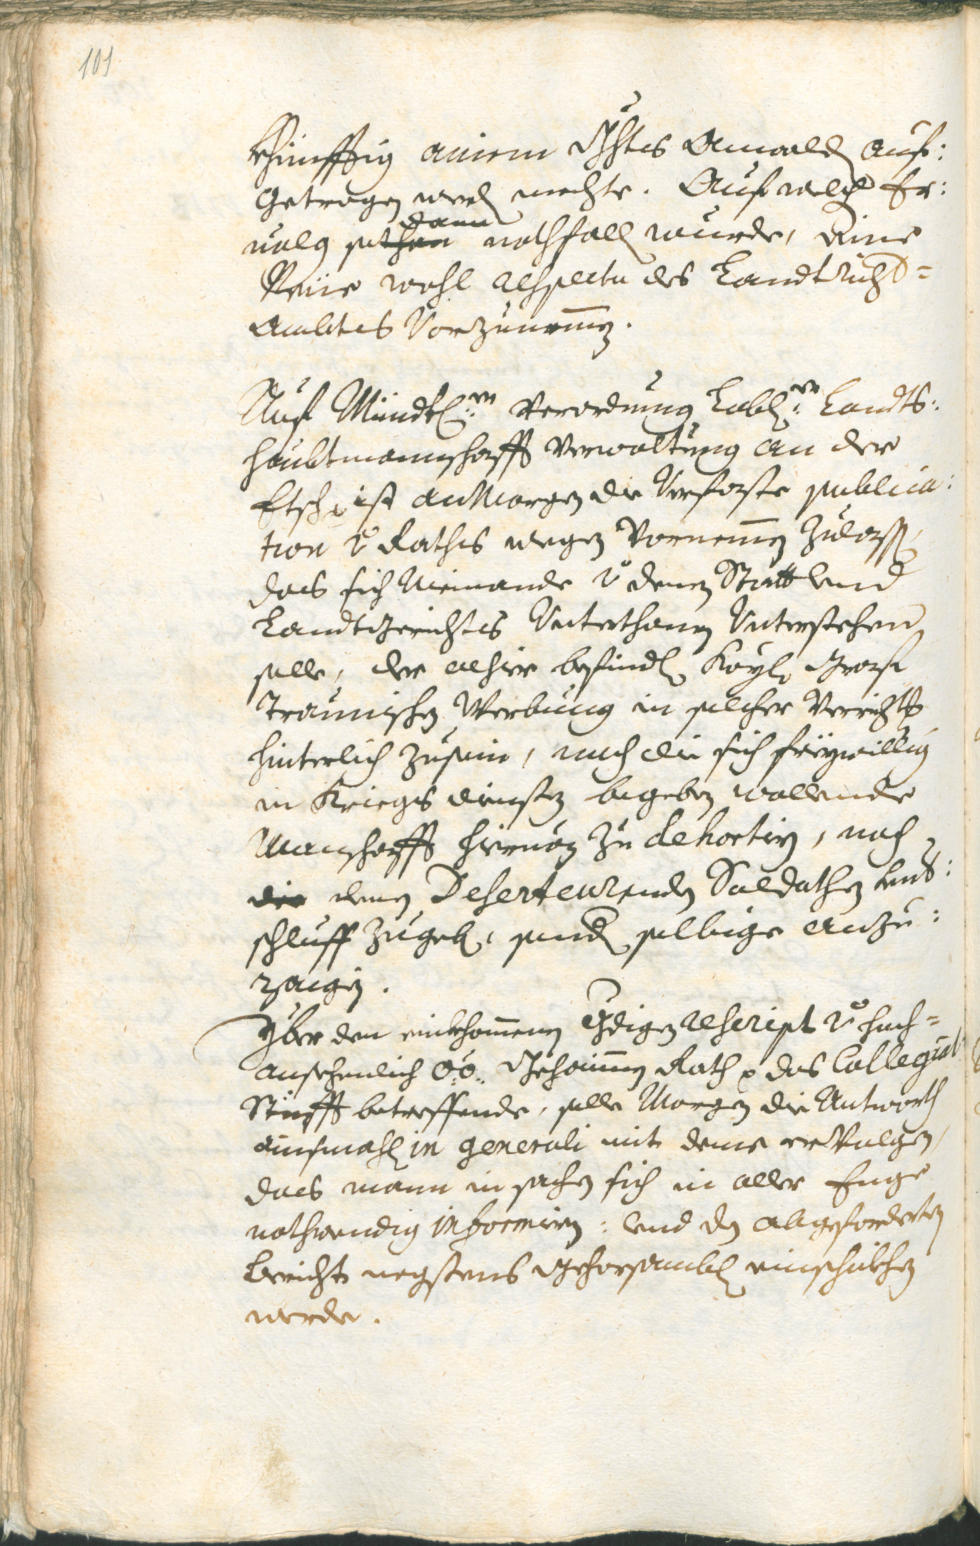 101
khünfftig ainem Ghts Anwald auf:
getragen werd mechte. Auf welch Er:
volg sothan dann nothfall wurde, dine
Reiie wohl respectu des Landtricht=
Ambtes Vorzunemen.
Auf Mündtl:en Verordnung Lobl:en Landts:
haubtmannschafft Verwaltung an der
Etsch ist an Morgen die Verfaste publica:
tion v Raths wegen Vornemen zulass,
das sich Niemande v denen Statt und
Landtgerichts Unterthanen Unterstehen
solle, der alhier befindl Kayl Graf
Traunischen Werbung in solcher Verricht
hinterlich zusein, noch die sich freywillig
in Kriegs diensten begeben wollende
Manschafft hiervon zu dehortirn, noch
die denen Deserteurenden Soldathen Unt:
schluff zugeb, sond selbige anzu:
zaigen.
Yber den einkhomenen Gdigen rescript v hoch=
ansehenlich O:Ö: Gehaimen Rath das Collegiat
Stüfft betreffende, solle Morgen die Antworth
ainsmahl in generali mit deme ervolgen,
das mann in sachen sich in aller Enge
nothwendig informirn: und den abgeforderten
bericht negstens gehorsambl einschikhen
werde.